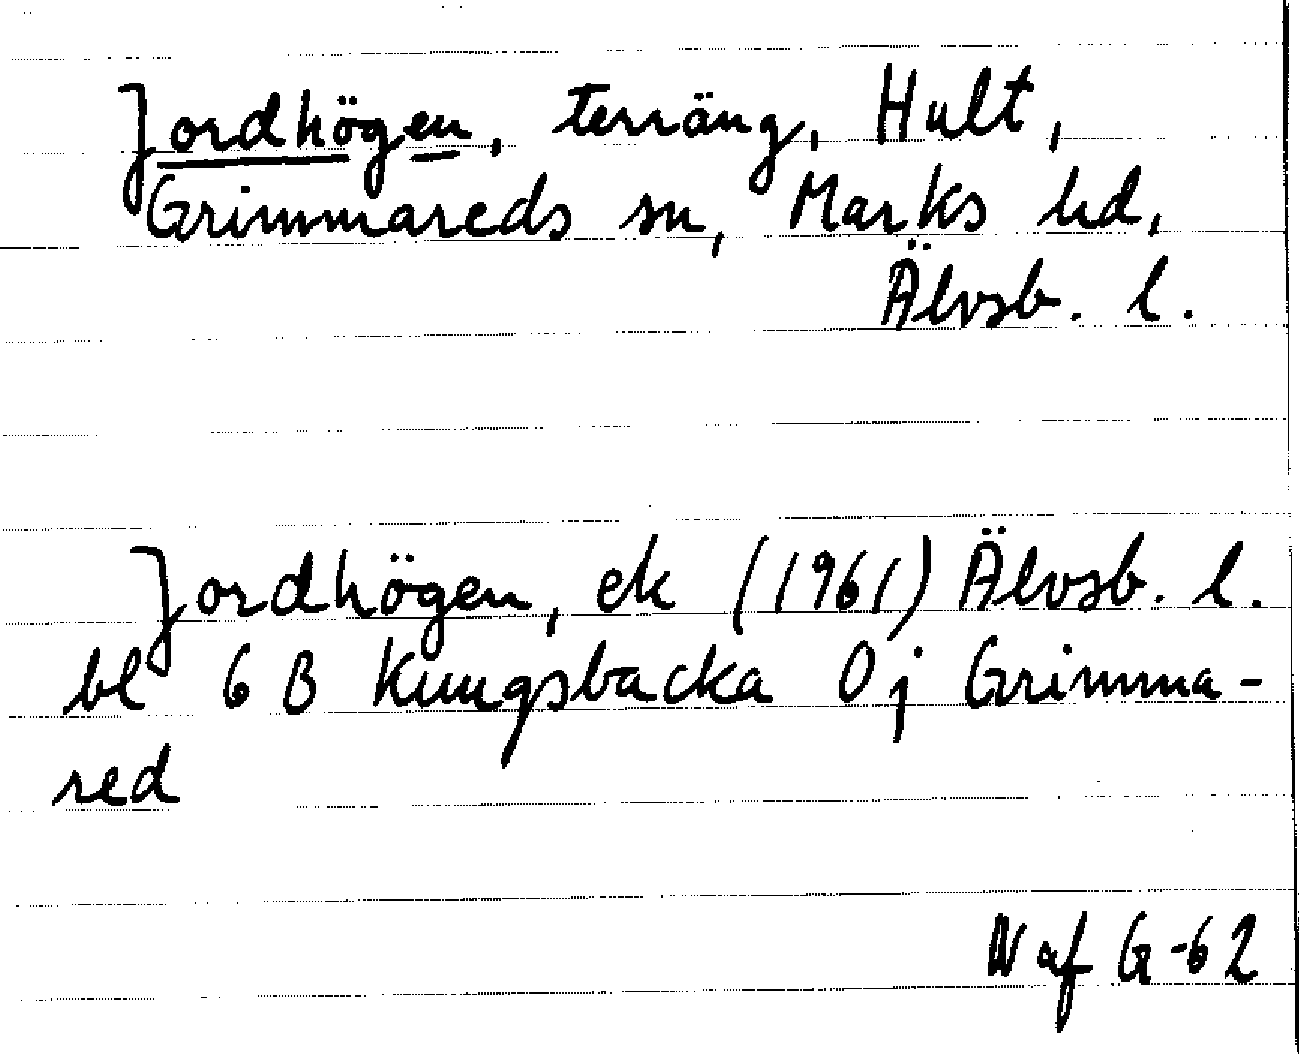 Jordhögen, terräng, Hult,
Grimmareds sn, Marks hd,
Älvsb. l.
Jordhögen, ek (1961) Älvsb. l.
bl 6 B Kungsbacka 0j Grimma-
red
N af G -62